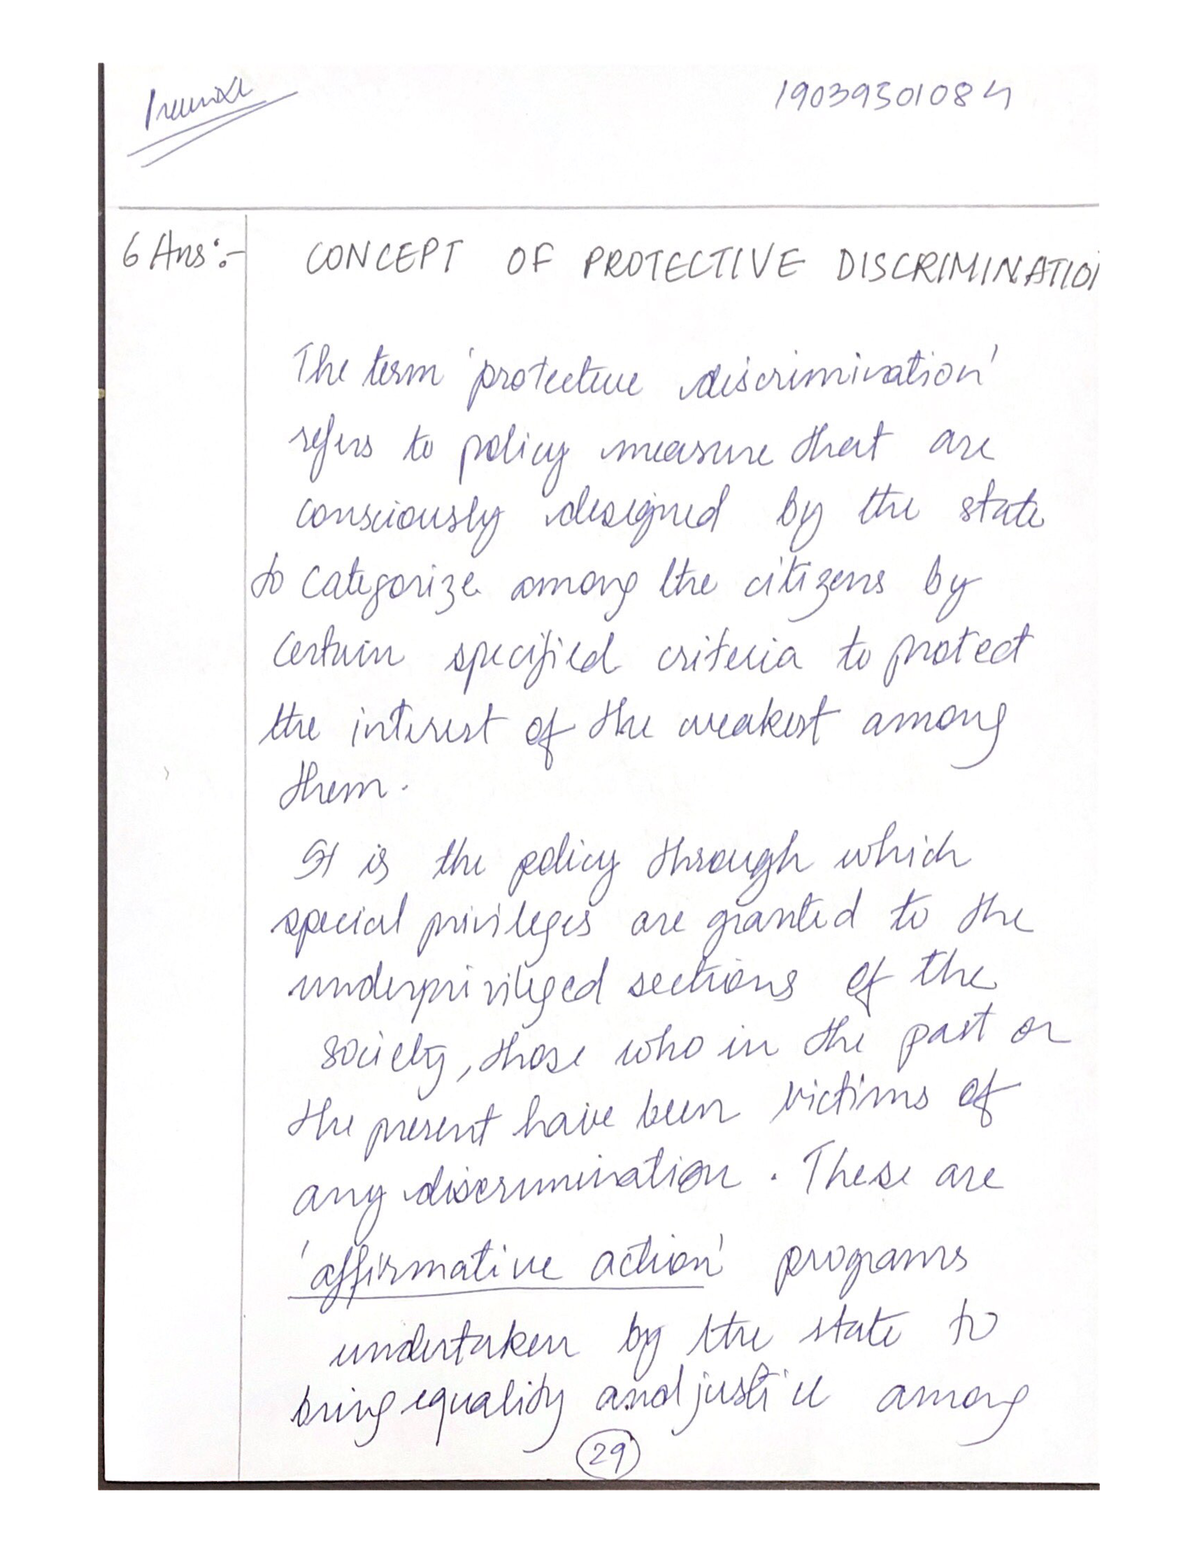 19039301084
6 Ans :- CONCEPT OF PROTECTIVE DISCRIMINATION
The term 'protective discrimination'
refers to policy measure that are
consciously designed by the state
to categorize among the citizens by
certain specified criteria to protect
the interest of the weakest among
them.
It is the policy through which
special privileges are granted to the
underprivileged sections of the
society, those who in the past or
the present have been victims of
any discrimination. These are
'affirmative action' programs
undertaken by the state to
bring equality and justice among
29